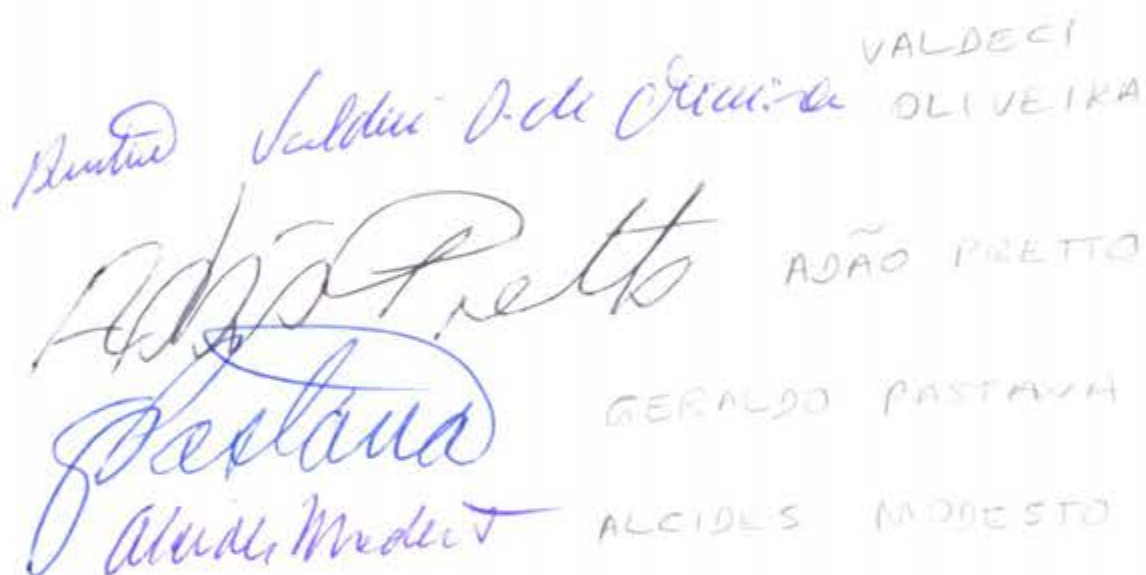 VALDECI
Valdeci O. de Oliveira OLIVEIRA
Adão Pretto ADÃO PRETTO
Pastana GERALDO PASTANA
Alcides Modesto ALCIDES MODESTO